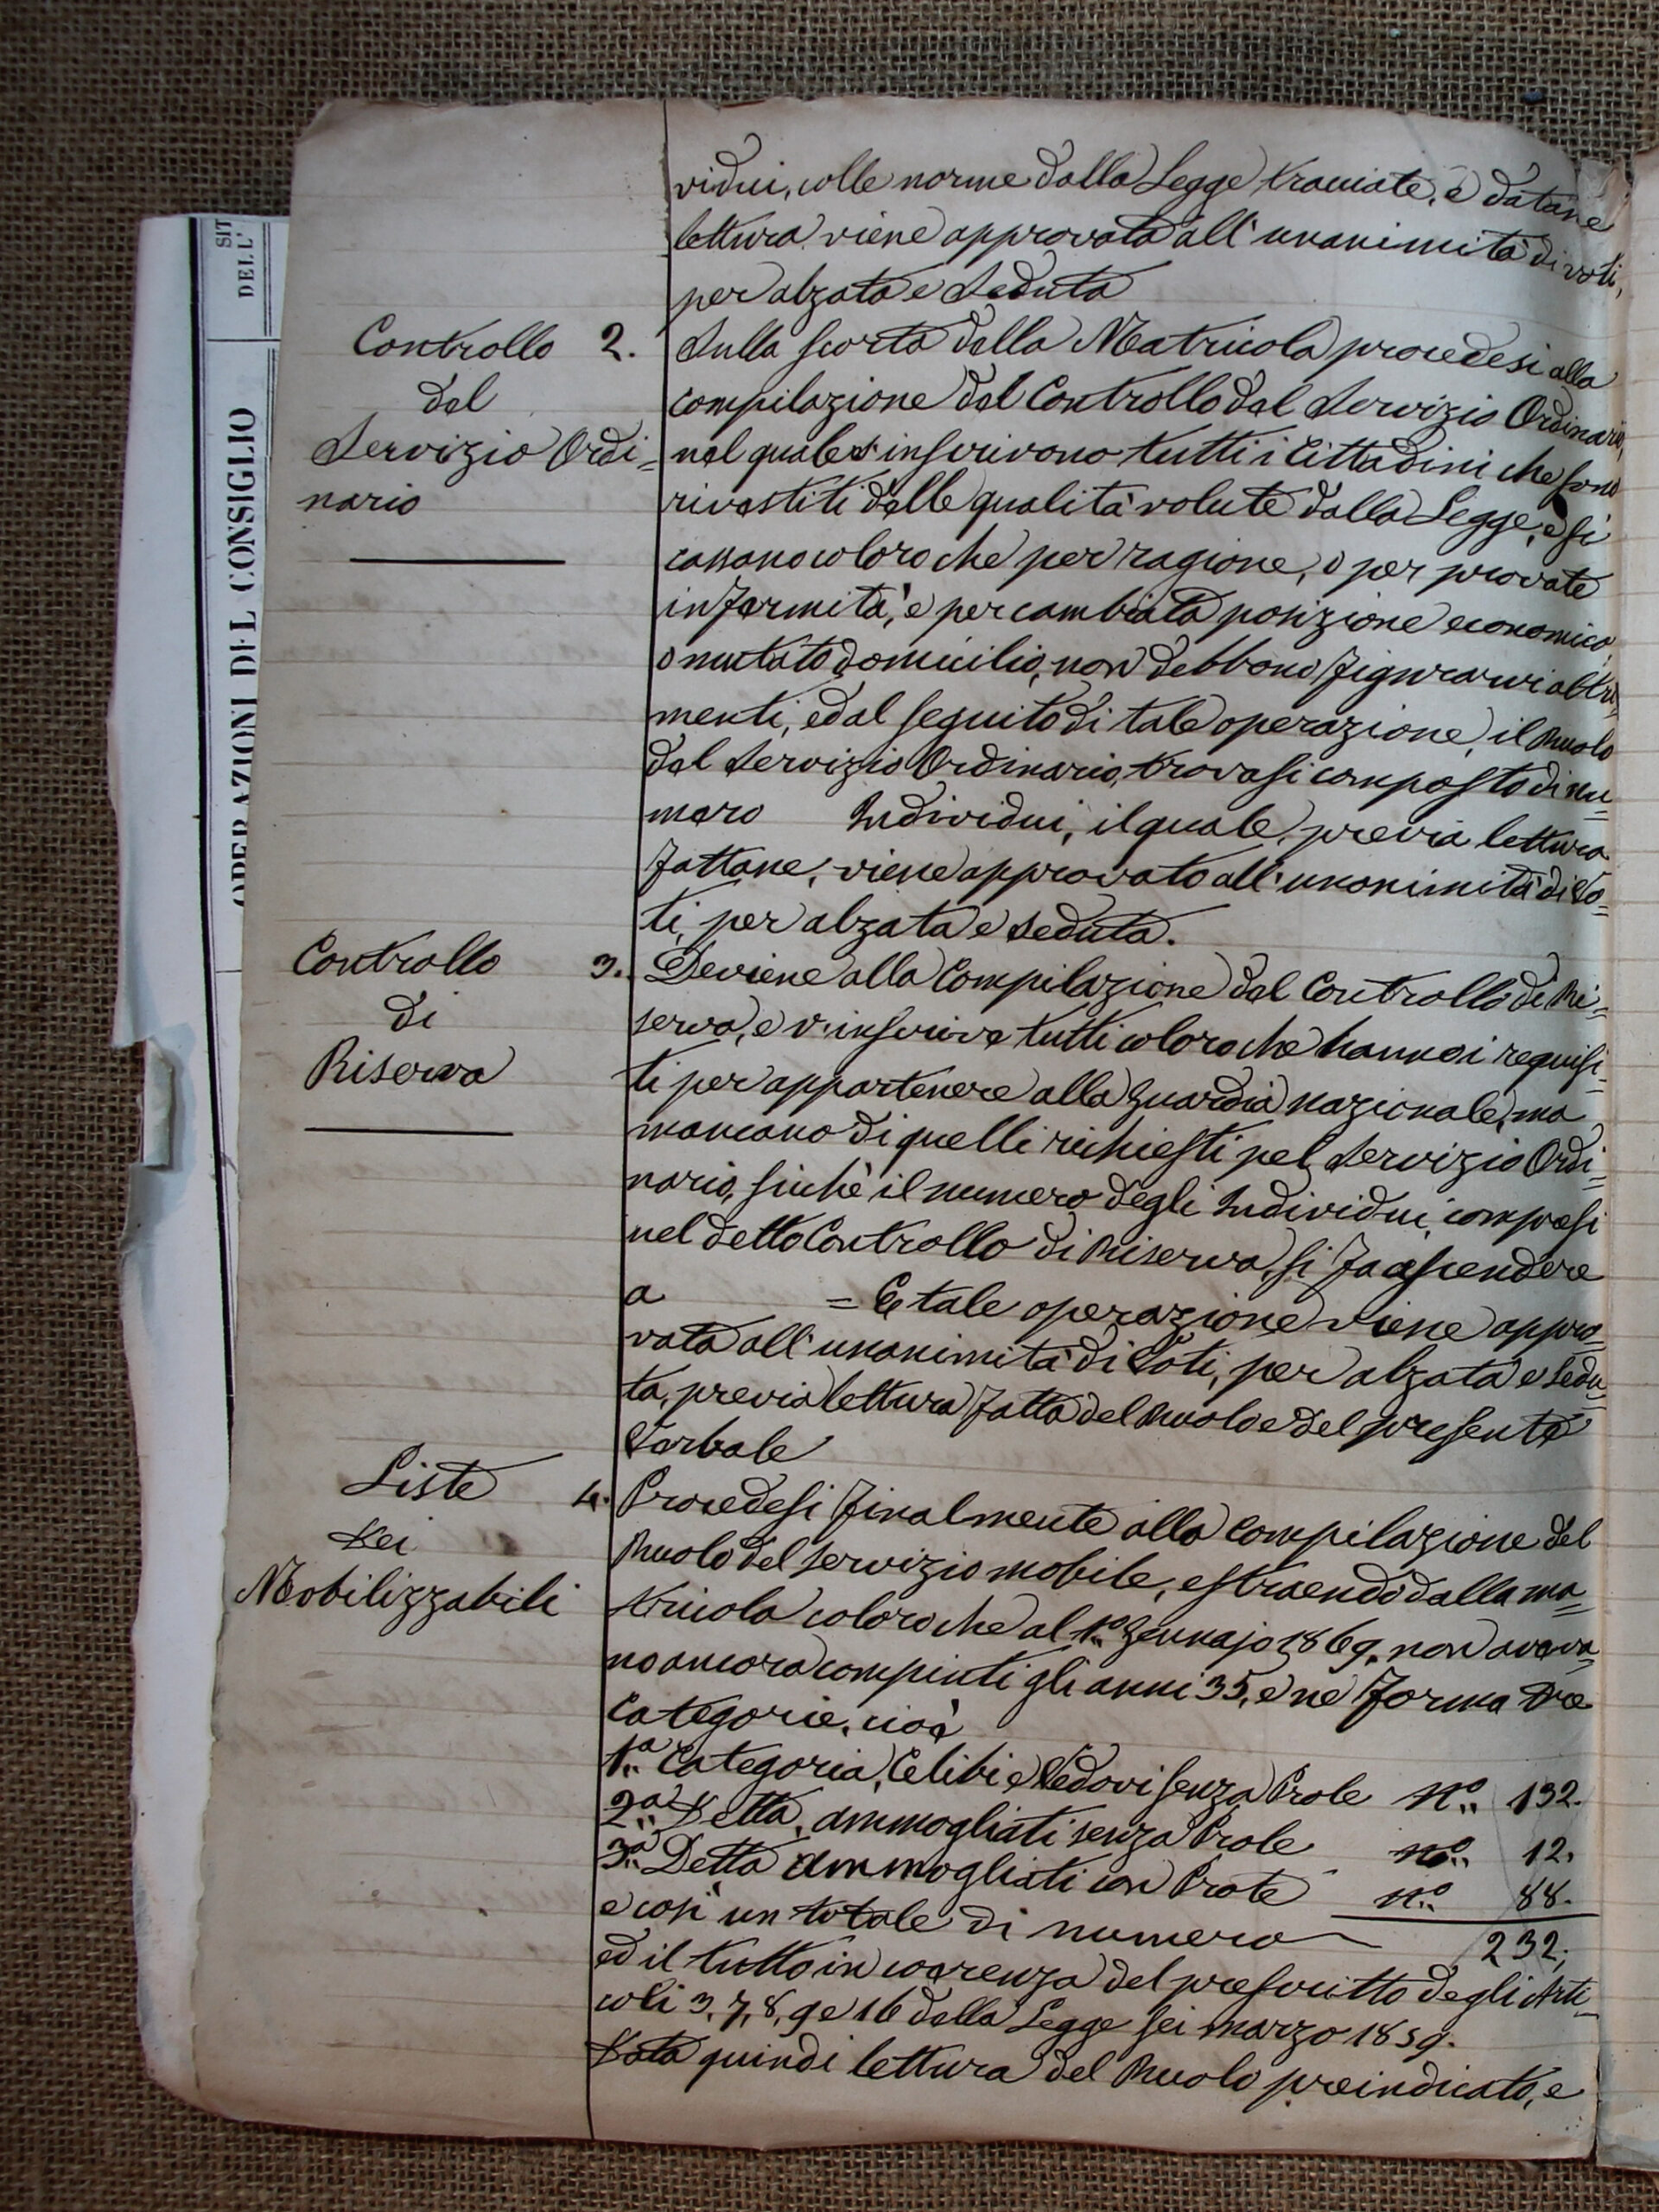 SIT
DELL'
OPERAZIONI DEL CONSIGLIO
vidui, colle norme dalla Legge tracciate, e datane
lettura viene approvata all'unanimità di voti,
per alzata e seduta
Controllo
del
Servizio Ordi=
nario
2. Sulla scorta della Matricola procedesi alla
compilazione del Controllo del Servizio Ordinario,
nel quale s'inscrivono tutti i Cittadini che sono
rivestiti delle qualità volute dalla Legge, e si
cassano coloro che per ragione, o per provate
infermità, e per cambiata posizione economica,
o mutato domicilio, non debbono figurarvi altri=
menti, ed al seguito di tale operazione, il Ruolo
del Servizio Ordinario, trovasi composto di nu=
mero Individui, il quale, previa lettura
fattane, viene approvato all'unanimità di Vo=
ti, per alzata e seduta.
Controllo
di
Riserva
3. Deviene alla Compilazione del Controllo di Ri=
serva, e v'inscrive tutti coloro che hanno i requisi=
ti per appartenere alla Guardia nazionale, ma
mancano di quelli richiesti pel Servizio Ordi=
nario, sicchè il numero degli Individui compresi
nel detto Controllo di Riserva, si fa ascendere
a = E tale operazione viene appro=
vata all'unanimità di Voti, per alzata e sedu=
ta, previa lettura fatta del Ruolo e del presente
Verbale
Liste
dei
Mobilizzabili
4. Procedesi finalmente alla compilazione del
Ruolo del servizio mobile, estraendo dalla ma=
tricola coloro che al 1.º Gennajo 1869, non aveva=
no ancora compiuti gli anni 35, e ne forma tre
Categorie, cioè
1.ª Categoria, Celibi e Vedovi senza Prole N.º 132.
2.ª Detta, ammogliati senza Prole N.º 12.
3.ª Detta ammogliati con Prole N.º 88.
e così un totale di numero 232;
ed il tutto in coerenza del prescritto degli Arti=
coli 3, 7, 8, 9 e 16 della Legge sei marzo 1859.
Data quindi lettura del Ruolo preindicato, e